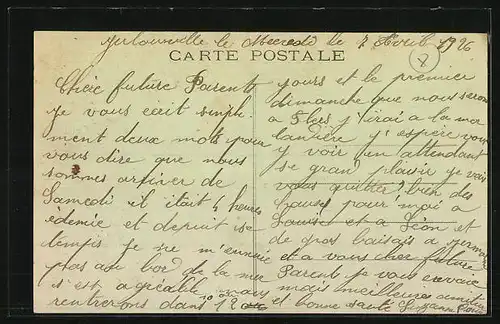 Jullouville le Mercredi le 7 Avril 1926
CARTE POSTALE
8
Chère future Parents
je vous écrit simple
ment deux mots pour
vous dire que nous
sommes arriver de
Samedi il était 4 heures
édemie et depuit se
temps je ne m'ennuie
pas au bord de la mer
s'est agréable nous
rentrerons dans 10 ou 12
jours et le premier
dimanche que nous serons
a Flers j'irai a la
j'espère vous
y voir en attendant
se grand plaisir je vais
vous quitter bien des
pour moi a
Louise et a Léon et
de gros baisais a Germaine
et a vous cher future
Parent je vous envoie
mais meilleures amitiés
et bonne santé Suzanne